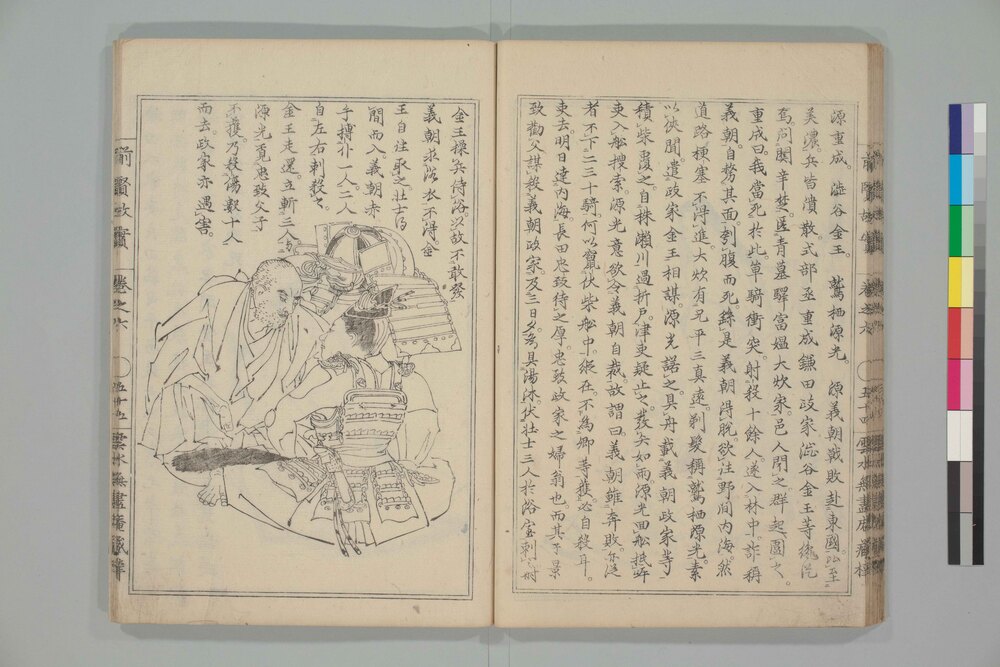 源重成。澁谷金王。鷲栖源光。源義朝戰敗赴東國。比至
美濃兵皆潰散式部丞重成鎌田政家澁谷金王等纔從
焉。間關辛楚。匿青墓驛富媼大炊家。邑人聞之群起圍之。
重成曰我當死於此。單騎衝突。射殺十餘人。遂入林中。詐稱
義朝。自剺其面刳腹而死。繇是義朝得脫。欲往野間内海。然
道路梗塞不得進。大炊有兄平三真遠。剃髮稱鷲栖源光。素
以俠聞。遣政家金王相謀。源光諾之。具舟載義朝政家等
積柴覆之。自株瀨川過折戶津吏疑止之。發矢如雨。源光回舩抵岸
吏入舩搜索。源光意欲令義朝自裁。故謂曰義朝雖奔敗。
者不下二三十騎。何以竄伏柴舩中。縱在。不為卿等獲。必自殺耳。
吏去。明日達内海。長田忠致待之厚。忠致政家之婦翁也。而其子景
致勸父謀殺義朝政家。及三日夕。具湯沐。伏壯士三人於浴室刺之。
金王操兵侍浴。以故不敢發
義朝求浴衣不得。金
王自往取之。壯士
間而入。義朝赤
手搏仆一人。二人
自左右刺殺之。
金王走還。立斬三人
源光覓忠致父子
不獲。乃殺傷數十人
而去。政家亦遇害。
前賢故實
卷之六
五十五
雲水無盡庵藏梓
卷之六
五十四
雲水無盡庵藏梓